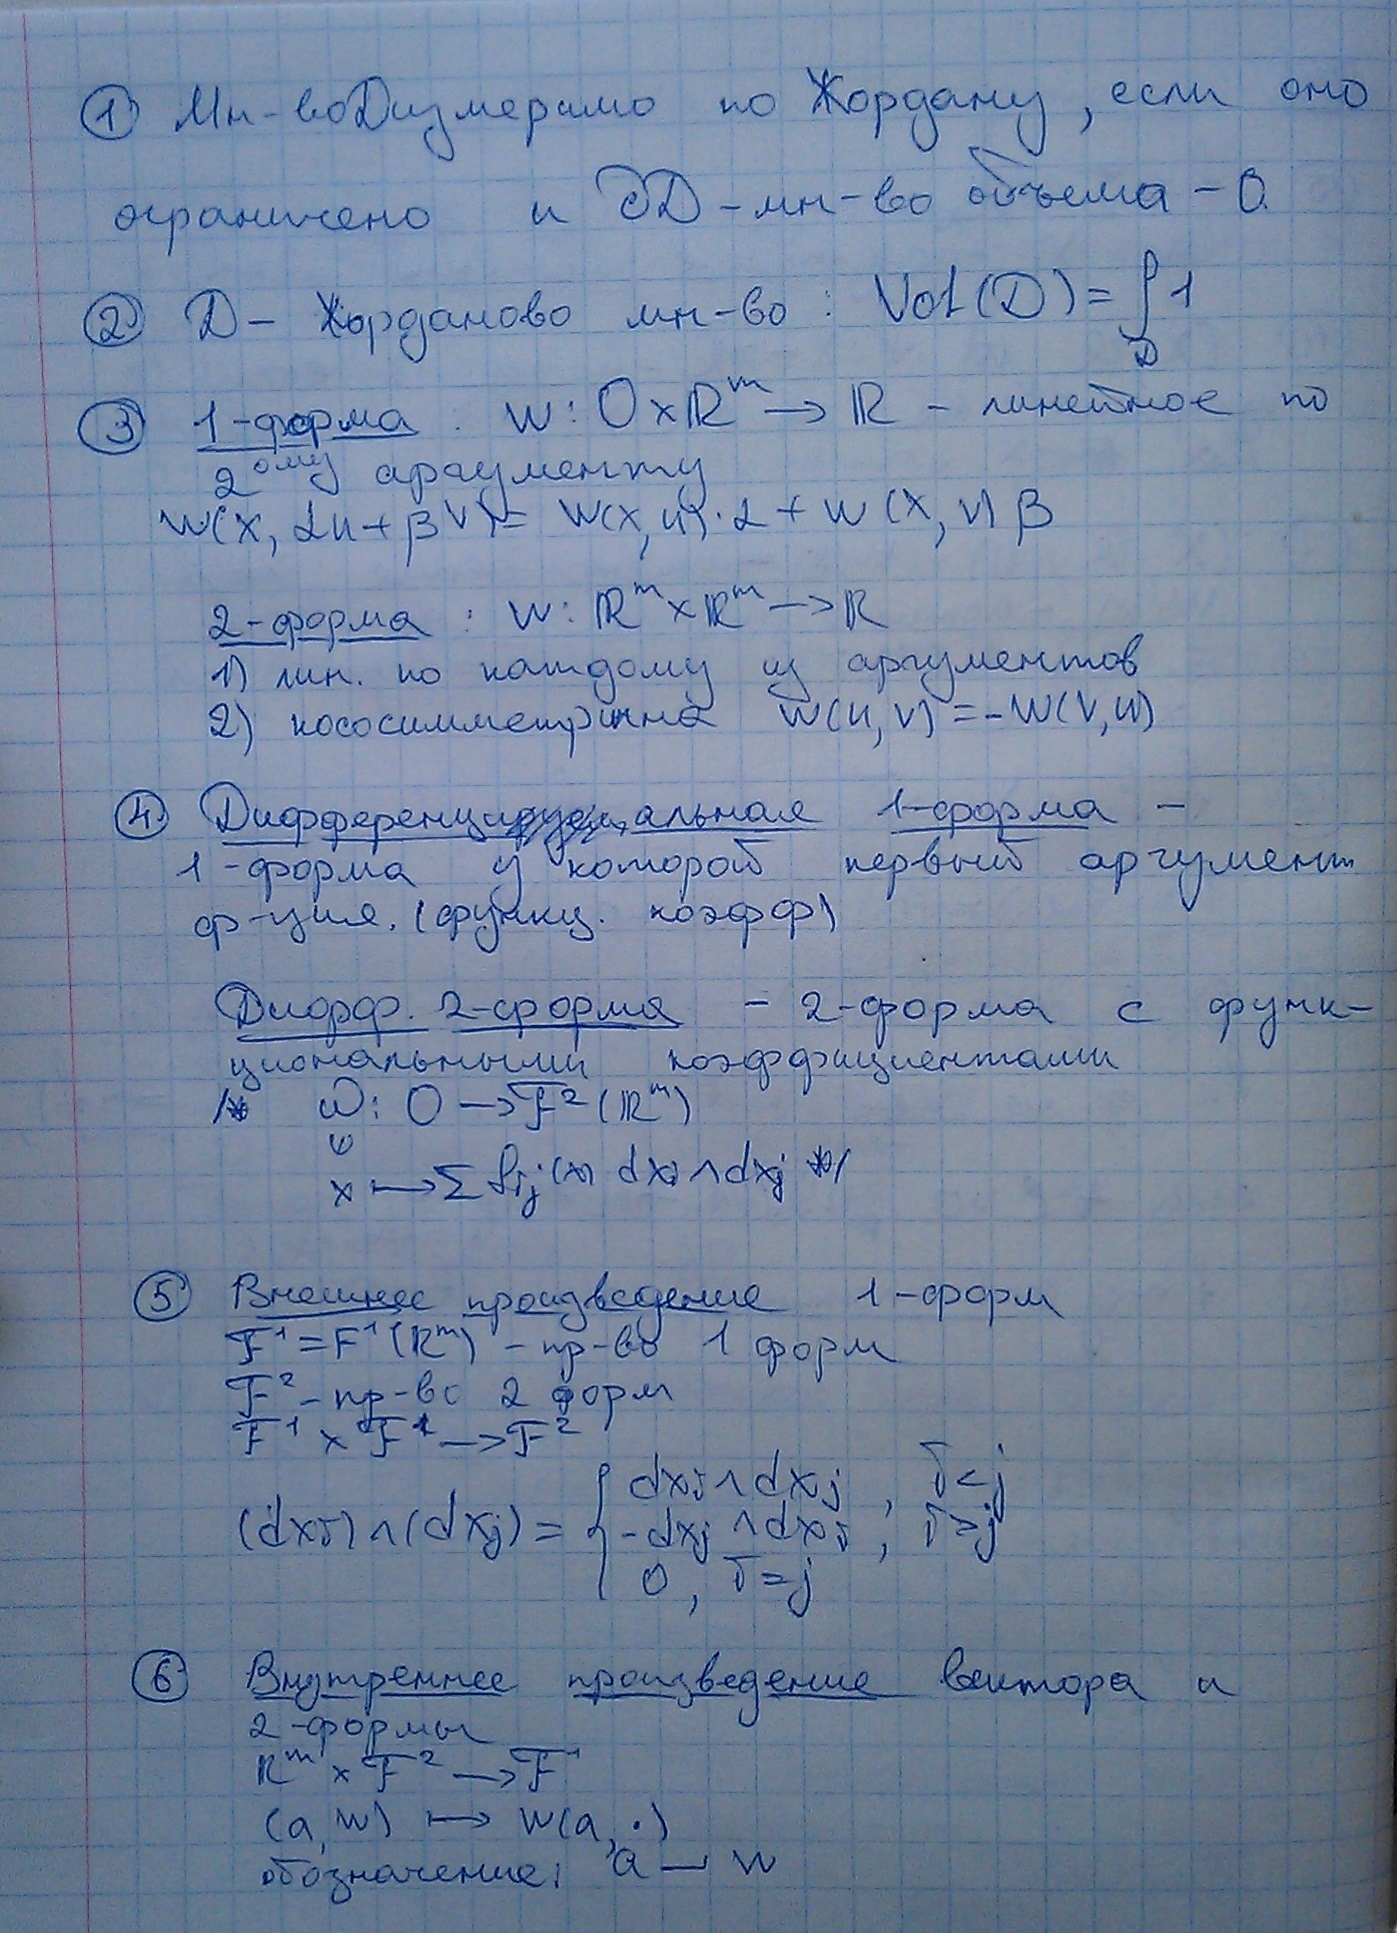 ① Мн-во D измеримо по Жордану, если оно
ограничено и ∂D - мн-во объема - 0.
② D - Жорданово мн-во: Vol(D) = ∫_D 1
③ 1-форма: W: O × ℝ^m → ℝ - линейное по
2^ому аргументу
W(x, αu + βv) = W(x, u)·α + W(x, v)β
2-форма: W: ℝ^m × ℝ^m → ℝ
1) лин. по каждому из аргументов
2) кососимметрична W(u, v) = -W(v, u)
④ Дифференциальная 1-форма -
1-форма у которой первый аргумент
ф-ция. (функц. коэфф)
Дифф. 2-форма - 2-форма с функ-
циональными коэффициентами
/* W: O → F²(ℝ^m)
x ↦ Σ f_ij(x) dx_i ∧ dx_j */
⑤ Внешнее произведение 1-форм
F¹ = F¹(ℝ^m) - пр-во 1 форм
F² - пр-во 2 форм
F¹ × F¹ → F²
(dx_i) ∧ (dx_j) = { dx_i ∧ dx_j, i < j
-dx_j ∧ dx_i, i > j
0, i = j
⑥ Внутреннее произведение вектора и
2-формы
ℝ^m × F² → F¹
(a, W) ↦ W(a, ·)
обозначение: a ⌟ W